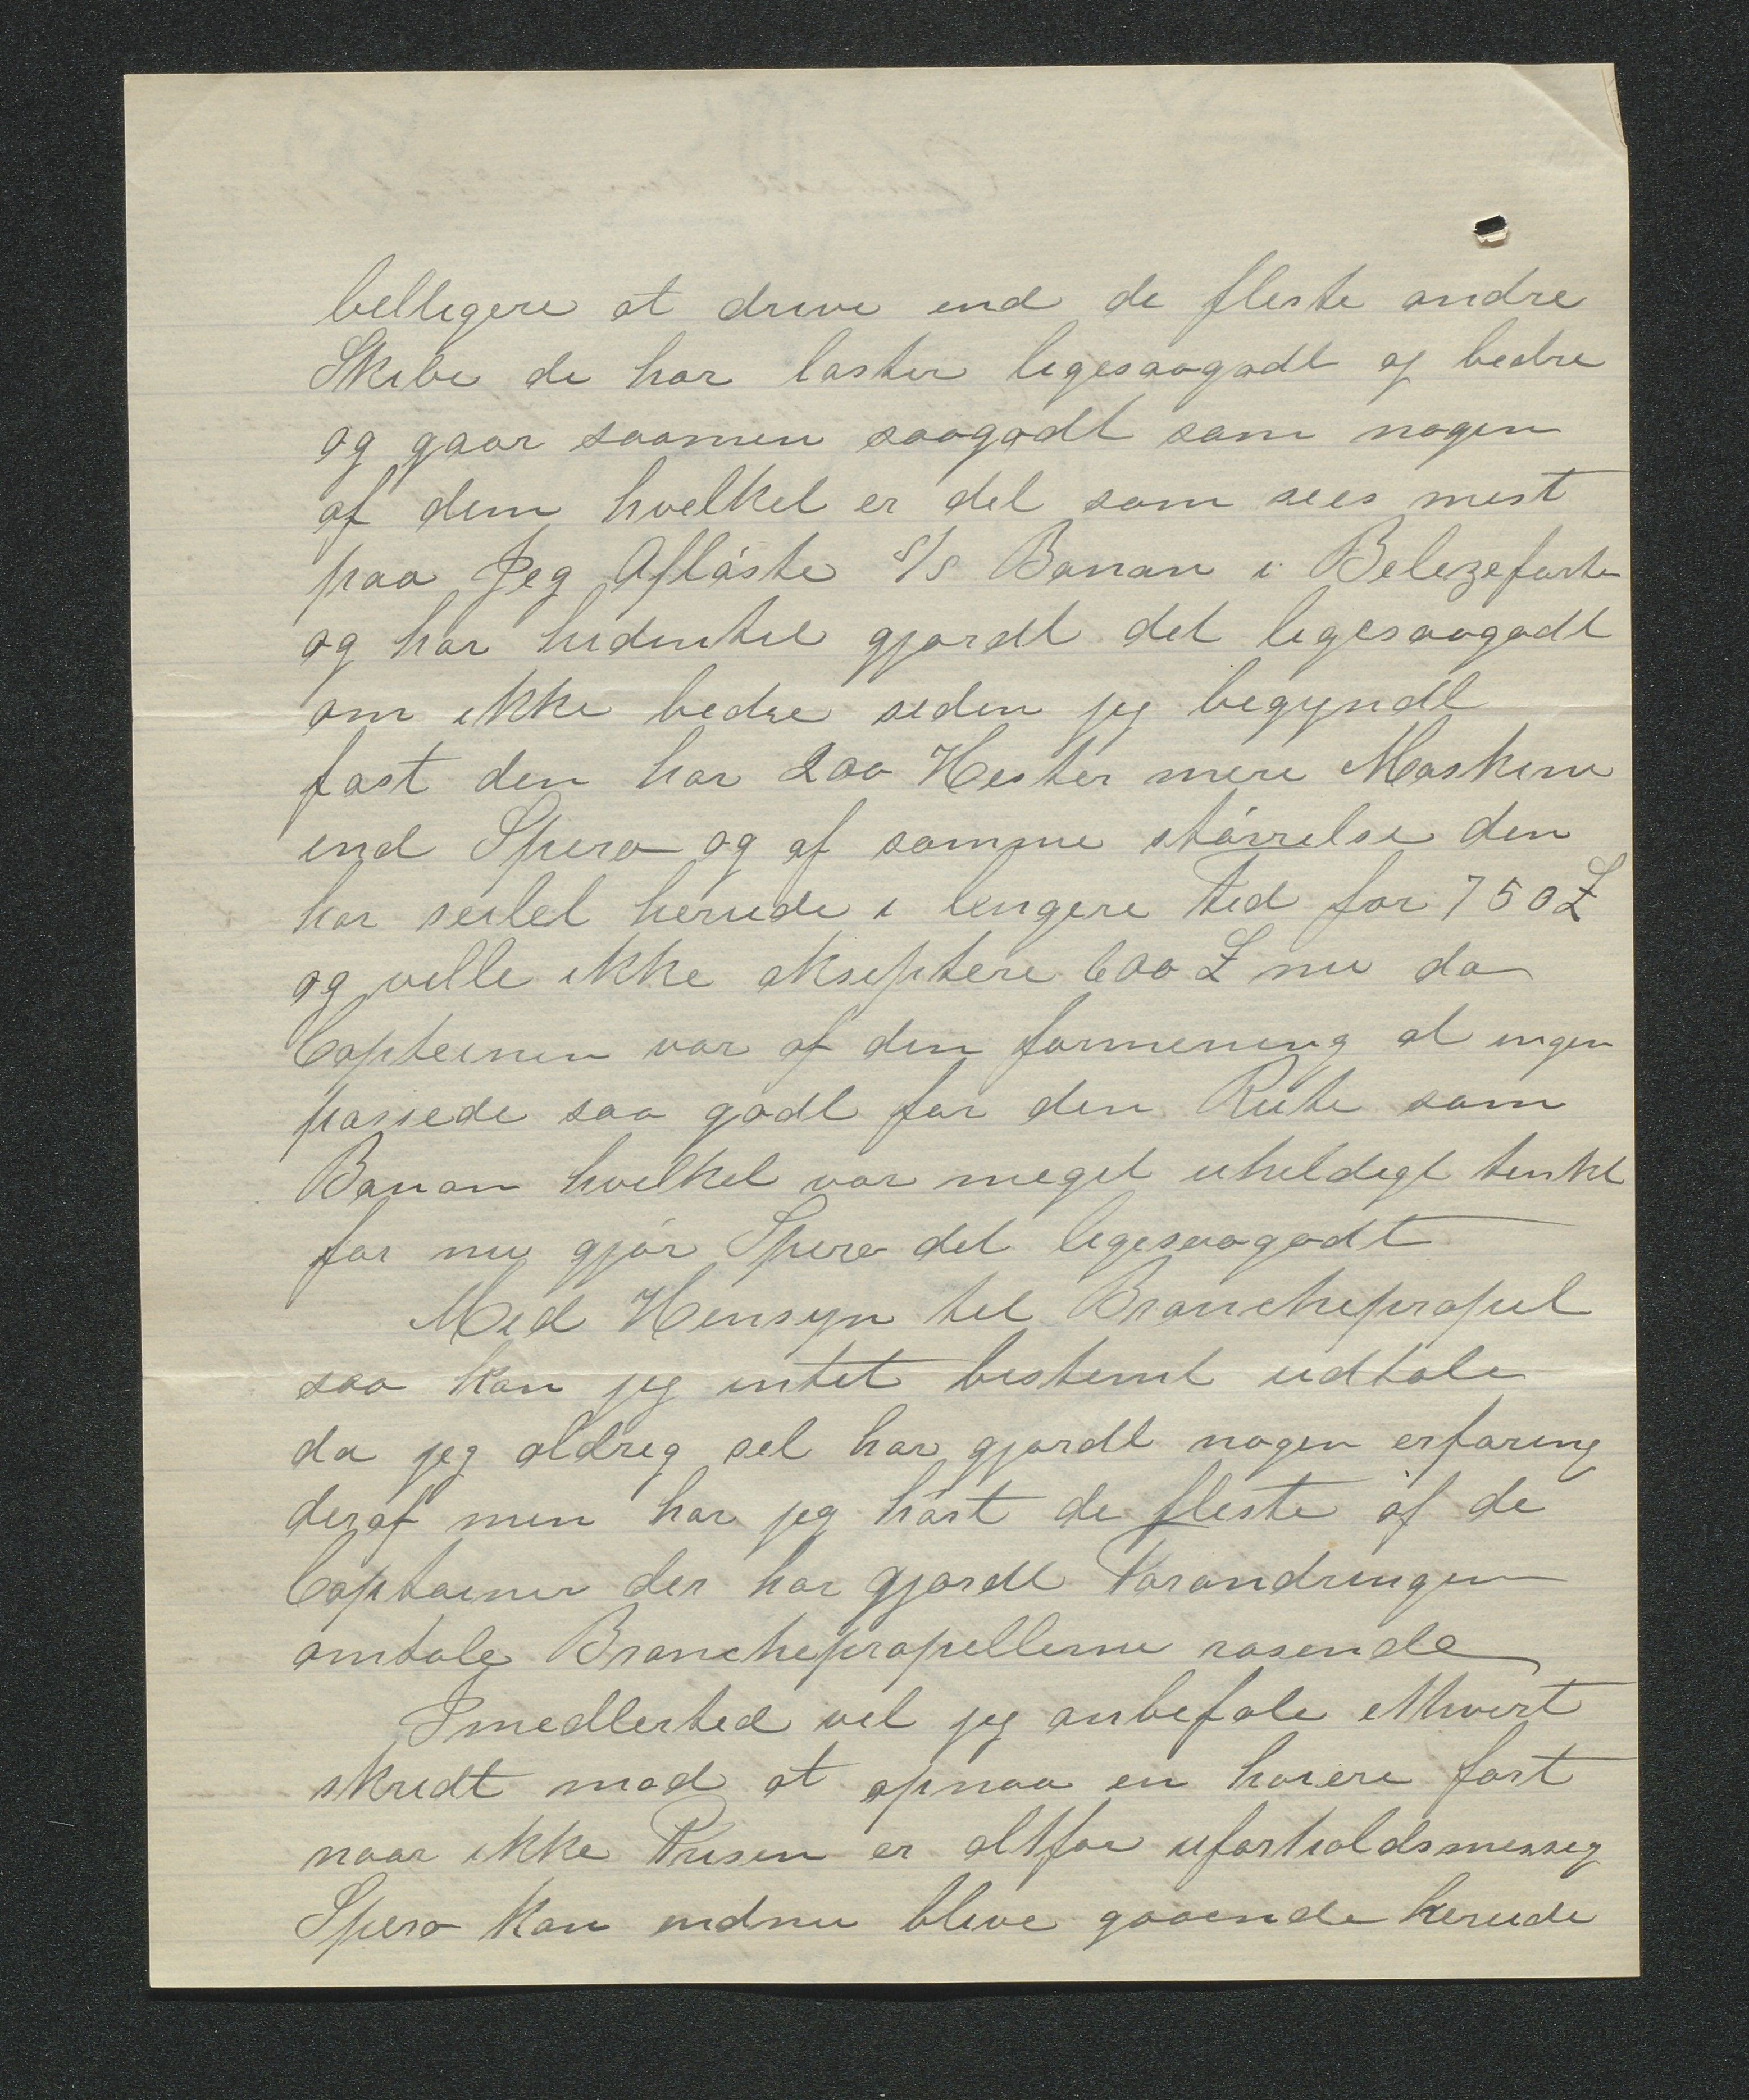 billigere at drive end de fleste andre
Skibe de har laster ligesaagodt og bedre
og gaar saamen saagodt som nogen
af dem hvilket er det som sees mest
paa Jeg Afløste S/S Banan i Belizefarten
og har hidintil gjordt det ligesaagodt
om ikke bedre siden jeg begyndt
fast den har 200 Hester mere Maskine
end Spero og af samme størrelse den
har seilet herude i lengere Tid for 750£
og ville ikke akseptere 600£ nu da
Capteinen var af den formening at ingen
passede saa godt for den Rute som
Banan hvilket var meget uheldigt tenkt
for nu gjør Spero det ligesaagodt
Med Hensyn til Branchepropel
saa kan jeg intet bestemt udtale
da jeg aldrig sel har gjordt nogen erfaring
deraf men har jeg hørt de fleste af de
Captainer der har gjordt Forandringen
omtale Branchepropellerne rosende
Imedlertid vil jeg anbefale ethvert
skridt mod at opnaa en høiere fart
naar ikke Prisen er altfor uforholdsmessig
Spero kan endnu blive gaaende herude